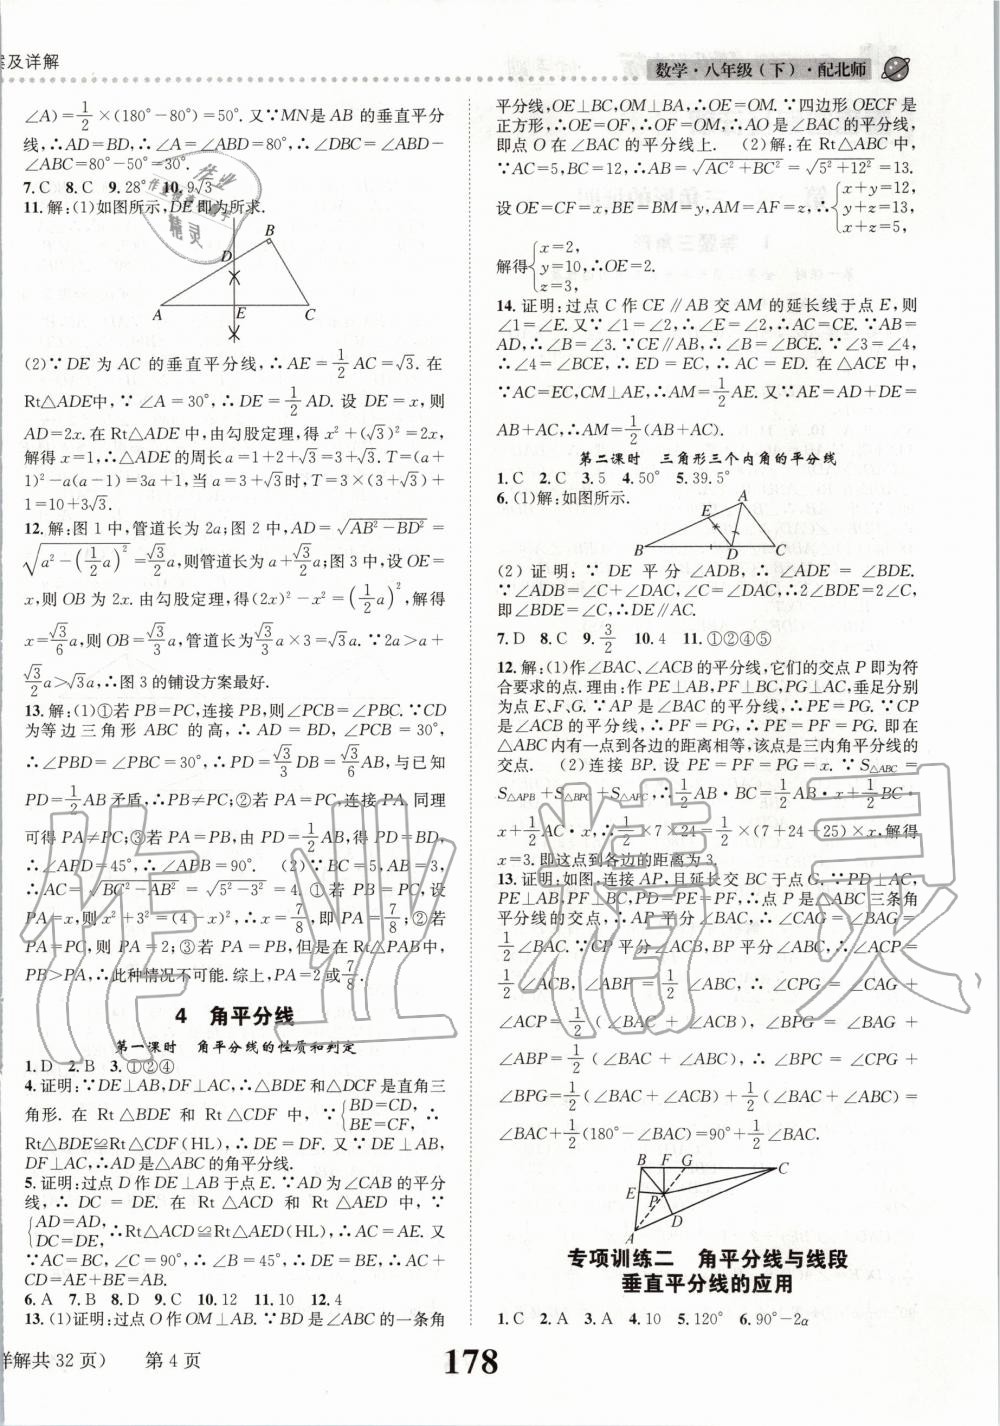 案及详解
数学·八年级(下)·配北师
∠A)=1/2×(180°-80°)=50°.又∵MN是AB的垂直平分
线,∴AD=BD,∴∠A=∠ABD,∴∠DBC=∠ABD-
∠ABC=80°-50°=30°.
7.C 8.C 9.28° 10.9√3
11.解:(1)如图所示,DE即为所求.
B
D
A E C
(2)∵DE为AC的垂直平分线,∴AE=1/2AC=√3.在
Rt△ADE中,∵∠A=30°,∴DE=1/2AD.设DE=x,则
AD=2x.在Rt△ADE中,由勾股定理,得x²+(√3)²=2x,
解得x=1,∴△ADE的周长a=1+2+√3=3+√3.T=(a+
1)²-a(a-1)=3a+1,当a=3+√3时,T=3×(3+√3)+
1=10+3√3.
12.解:图1中,管道长为2a;图2中,AD=√(AB²-BD²)=
√(a²-(1/2a)²)=√3/2a,则管道长为a+√3/2a;图3中,设OE=
x,则OB为2x.由勾股定理,得(2x)²-x²=(1/2a)²,解得
x=√3/6a,则OB=√3/3a,管道长为√3/3a×3=√3a.∵2a>a+
√3/2a>√3a,∴图3的铺设方案最好.
13.解:(1)①若PB=PC,连接PB,则∠PCB=∠PBC.∵CD
为等边三角形ABC的高,∴AD=BD,∠PCB=30°,
∴∠PBD=∠PBC=30°,∴PD=√3/3DB=√3/6AB,与已知
PD=1/2AB矛盾,∴PB≠PC;②若PA=PC,连接PA,同理
可得PA≠PC;③若PA=PB,由PD=1/2AB,得PD=BD,
∴∠APD=45°,∴∠APB=90°. (2)∵BC=5,AB=3,
∴AC=√(BC²-AB²)=√(5²-3²)=4.①若PB=PC,设
PA=x,则x²+3²=(4-x)²,∴x=7/8,即PA=7/8;②若
PA=PC,则PA=2;③若PA=PB,但是在Rt△PAB中,
PB>PA,∴此种情况不可能.综上,PA=2或7/8.
4 角平分线
第一课时 角平分线的性质和判定
1.D 2.B 3.①②④
4.证明:∵DE⊥AB,DF⊥AC,∴△BDE和△DCF是直角三
角形.在Rt△BDE和Rt△CDF中,∵{BD=CD, BE=CF,∴
Rt△BDE≌Rt△CDF(HL),∴DE=DF.又∵DE⊥AB,
DF⊥AC,∴AD是△ABC的角平分线.
5.证明:过点D作DE⊥AB于点E.∵AD为∠CAB的平分
线,∴DC=DE.在Rt△ACD和Rt△AED中,∵
{AD=AD, DC=DE,∴Rt△ACD≌Rt△AED(HL),∴AC=AE.又
∵AC=BC,∠C=90°,∴∠B=45°,∴DE=BE,∴AC+
CD=AE+BE=AB.
6.A 7.B 8.D 9.C 10.12 11.10 12.4
13.(1)证明:过点O作OM⊥AB.∵BD是∠ABC的一条角
平分线,OE⊥BC,OM⊥BA,∴OE=OM.∵四边形OECF是
正方形,∴OE=OF,∴OF=OM,∴AO是∠BAC的平分线,
即点O在∠BAC的平分线上. (2)解:在Rt△ABC中,
∵AC=5,BC=12,∴AB=√(AC²+BC²)=√(5²+12²)=13.
设OE=CF=x,BE=BM=y,AM=AF=z,∴{x+y=12, y+z=13, x+z=5,
解得{x=2, y=10,∴OE=2. z=3,
14.证明:过点C作CE∥AB交AM的延长线于点E,则
∠1=∠E.又∵∠1=∠2,∴∠E=∠2,∴AC=CE.∵AB=
AD,∴∠B=∠3.∵CE∥AB,∴∠B=∠BCE.∵∠3=∠4,
∴∠4=∠BCE,∴ED=EC,∴AC=ED.在△ACE中,
∵AC=EC,CM⊥AE,∴AM=1/2AE.又∵AE=AD+DE=
AB+AC,∴AM=1/2(AB+AC).
第二课时 三角形三个内角的平分线
1.C 2.C 3.5 4.50° 5.39.5°
6.(1)解:如图所示.
A
E
B D C
(2)证明:∵DE平分∠ADB,∴∠ADE=∠BDE.
∵∠ADB=∠C+∠DAC,∠C=∠DAC,∴2∠BDE=2∠C,
即∠BDE=∠C,∴DE∥AC.
7.D 8.C 9.3/2 10.4 11.①②④⑤
12.解:(1)作∠BAC、∠ACB的平分线,它们的交点P即为符
合要求的点.理由:作PE⊥AB,PF⊥BC,PG⊥AC,垂足分别
为点E、F、G.∵AP是∠BAC的平分线,∴PE=PG.∵CP
是∠ACB的平分线,∴PF=PG,∴PE=PF=PG.即在
△ABC内有一点到各边的距离相等,该点是三内角平分线的
交点. (2)连接BP.设PE=PF=PG=x.∵S△ABC=
S△APB+S△BPC+S△APC,∴1/2AB·BC=1/2AB·x+1/2BC·
x+1/2AC·x,∴1/2×7×24=1/2×(7+24+25)×x,解得
x=3.即这点到各边的距离为3.
13.证明:如图,连接AP,且延长交BC于点G.∵PD⊥AC,
PE⊥AB,PF⊥BC,PD=PE=PF,∴点P是△ABC三条角
平分线的交点,∴AP平分∠BAC,∴∠CAG=∠BAG=
1/2∠BAC.∵CP平分∠ACB,BP平分∠ABC,∴∠ACP=
1/2∠ACB,∠ABP=1/2∠ABC,∴∠CPG=∠CAG+
∠ACP=1/2(∠BAC+∠ACB),∠BPG=∠BAG+
∠ABP=1/2(∠BAC+∠ABC),∴∠BPC=∠CPG+
∠BPG=1/2(∠BAC+∠ACB)+1/2(∠BAC+∠ABC)=
∠BAC+1/2(180°-∠BAC)=90°+1/2∠BAC.
B F G C
E P
D
A
专项训练二 角平分线与线段
垂直平分线的应用
1.C 2.A 3.A 4.10 5.120° 6.90°-2α
详解共32页) 第4页
178
作业精灵